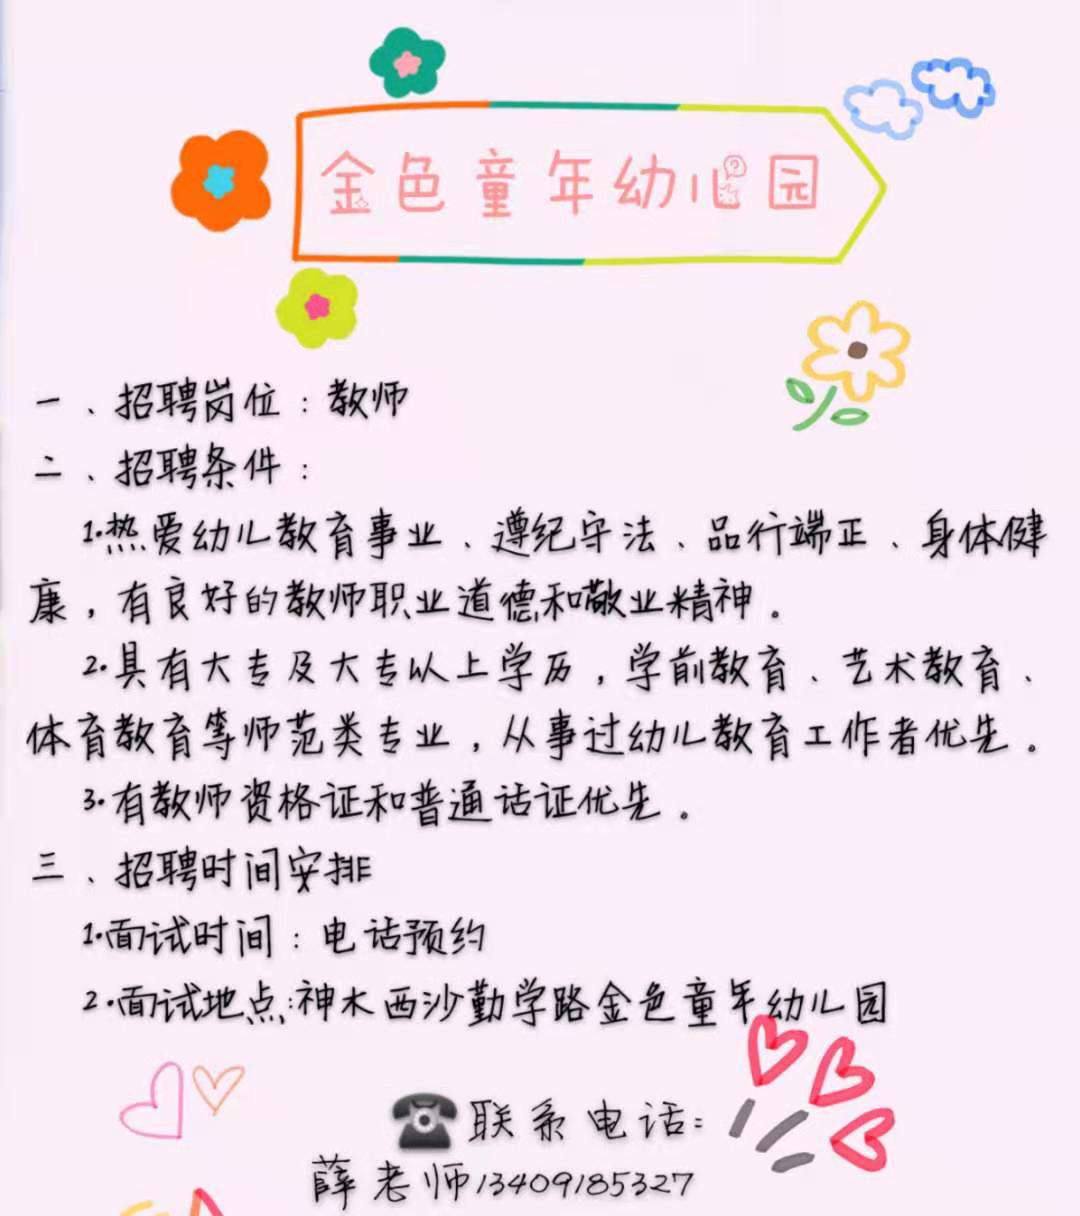 金色童年幼儿园
一、招聘岗位：教师
二、招聘条件：
1.热爱幼儿教育事业、遵纪守法、品行端正、身体健
康，有良好的教师职业道德和敬业精神。
2.具有大专及大专以上学历，学前教育、艺术教育、
体育教育等师范类专业，从事过幼儿教育工作者优先。
3.有教师资格证和普通话证优先。
三、招聘时间安排
1.面试时间：电话预约
2.面试地点：神木西沙勤学路金色童年幼儿园
联系电话：
薛老师13409185327